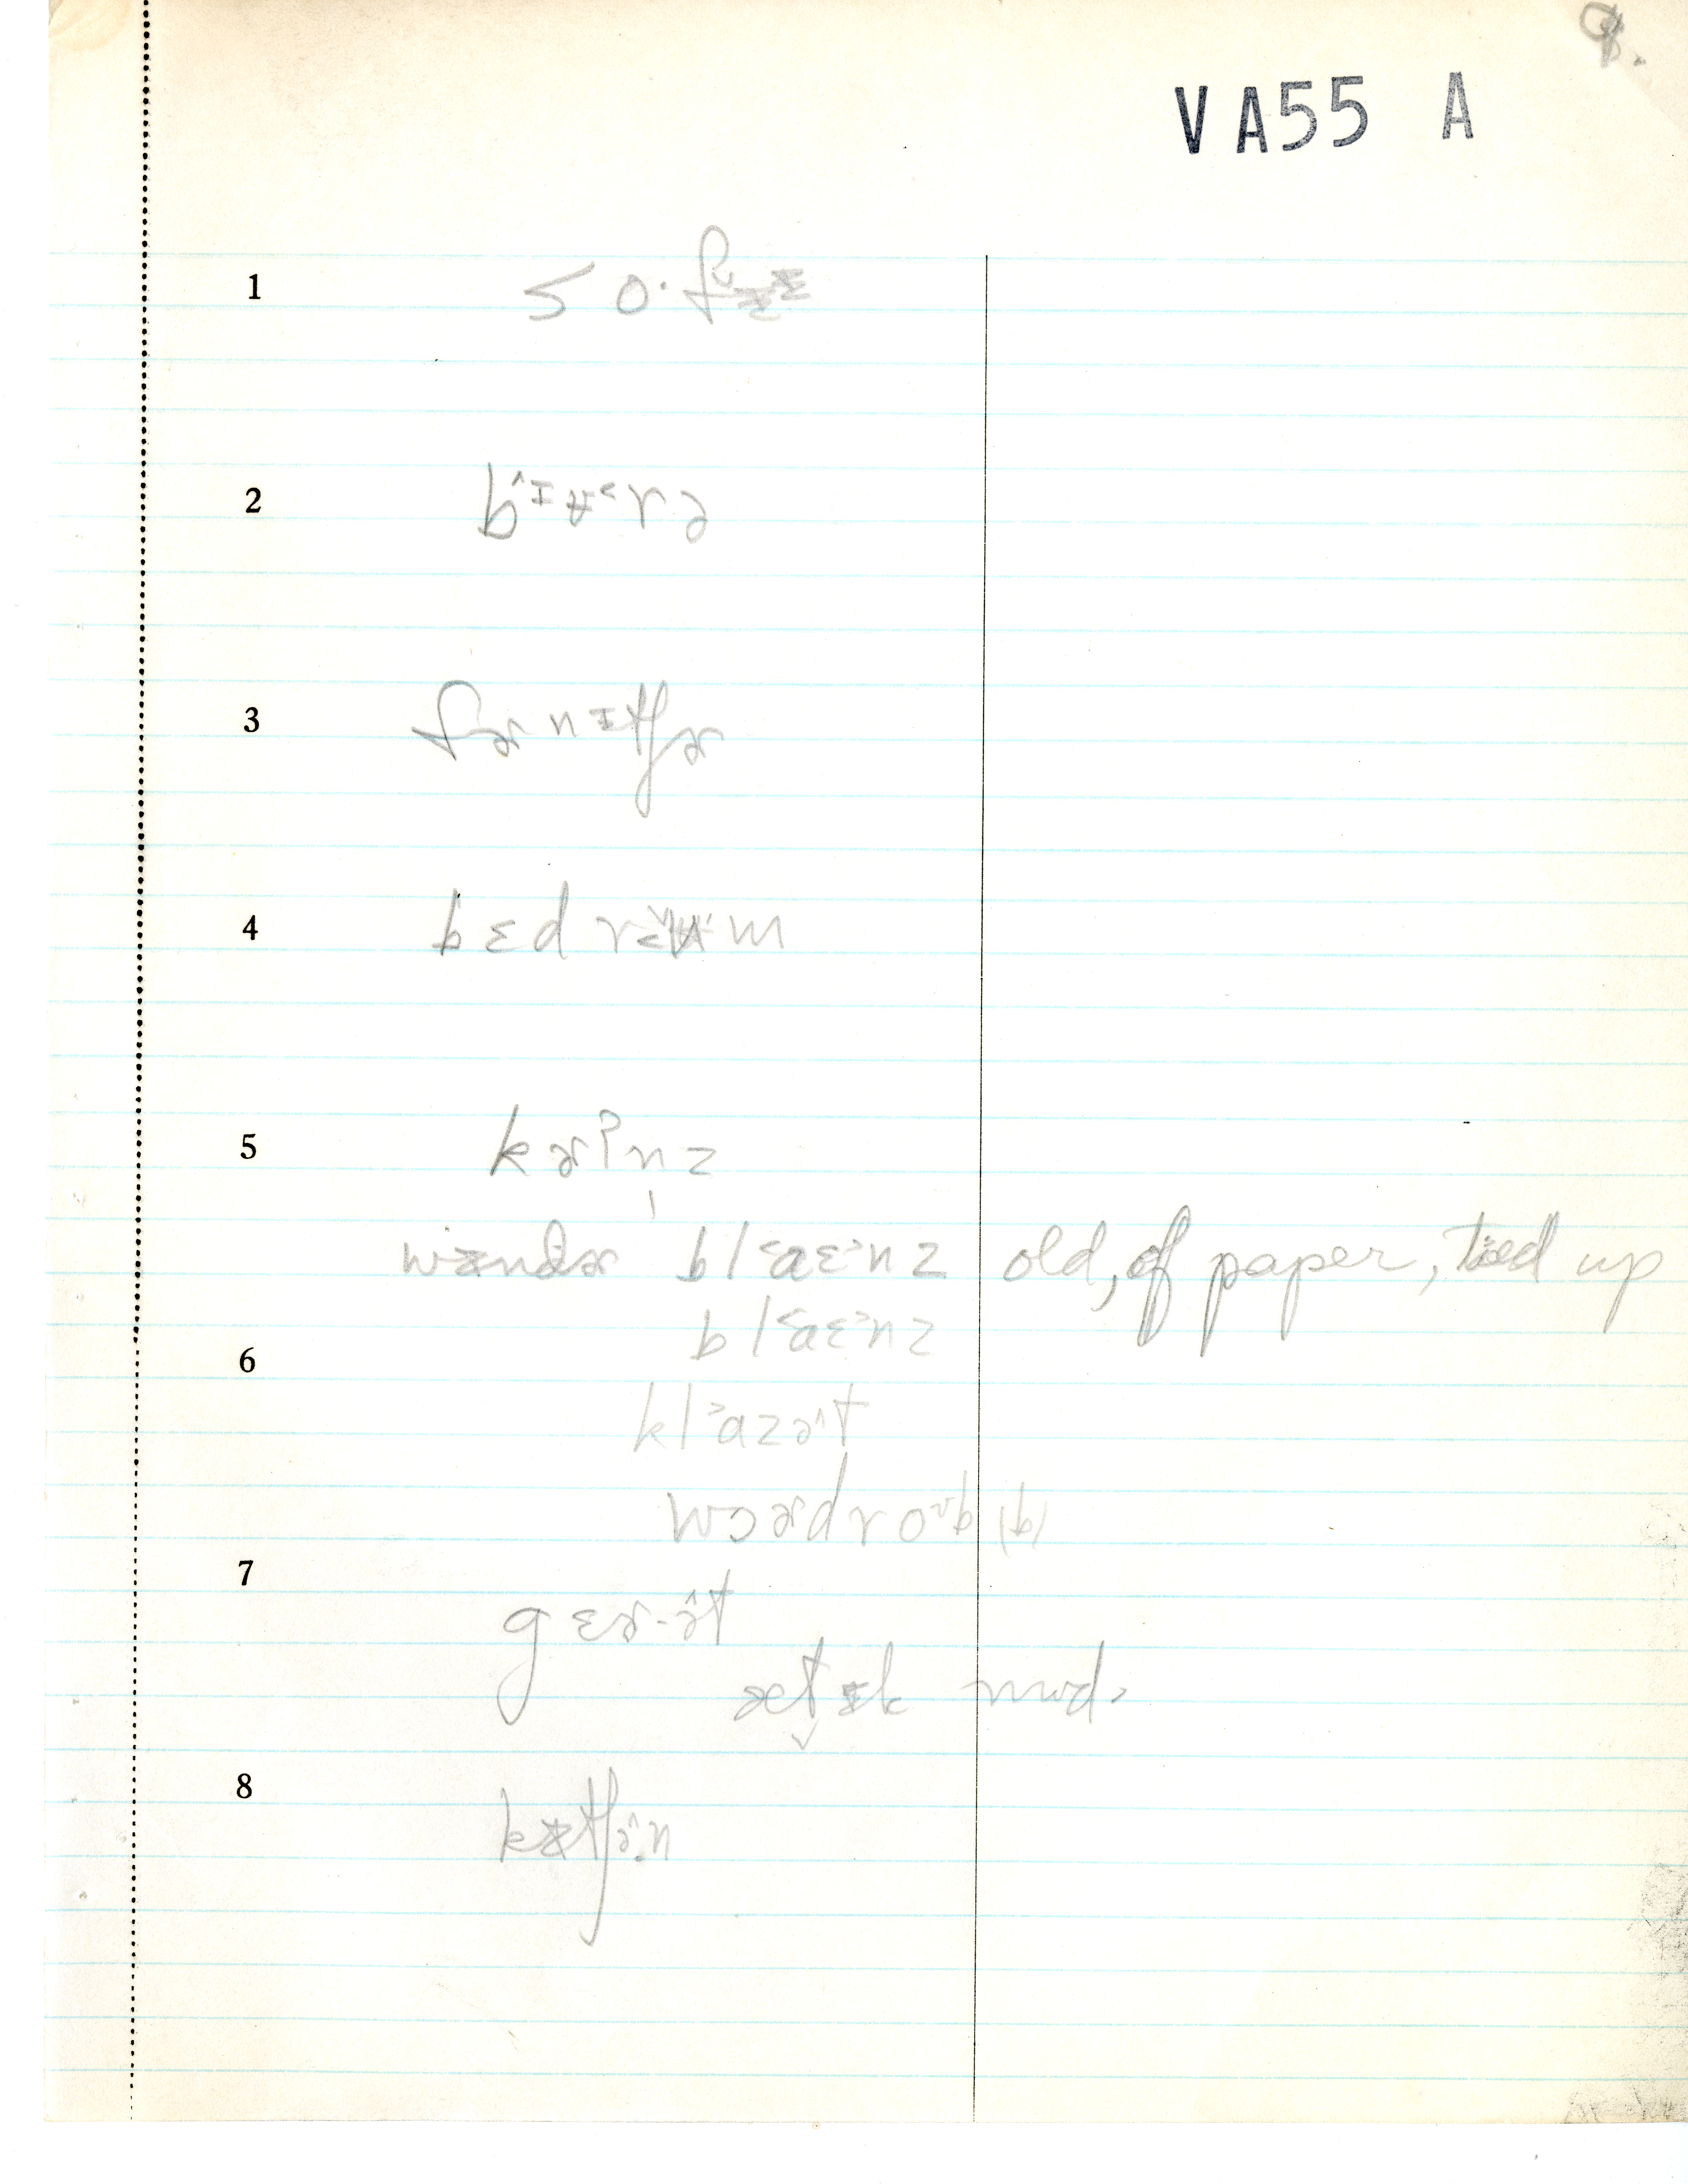 9.
VA55 A
1 so·fᵛɪᶻ
2 bˆɪʉ˂rə
3 fɚnɪtʃɚ
4 bɛdrʉm
5 kɚʔn̩z
wɪndɚ bl˂aɛ˃nz old, of paper, tied up
bl˂aɛ˃nz
6
kl˃azəˆt
wɔɚdroᵛb (b)
7
gɛɚ-əˆt
ætɪ̬k mod.
8
kɪtʃəˆn